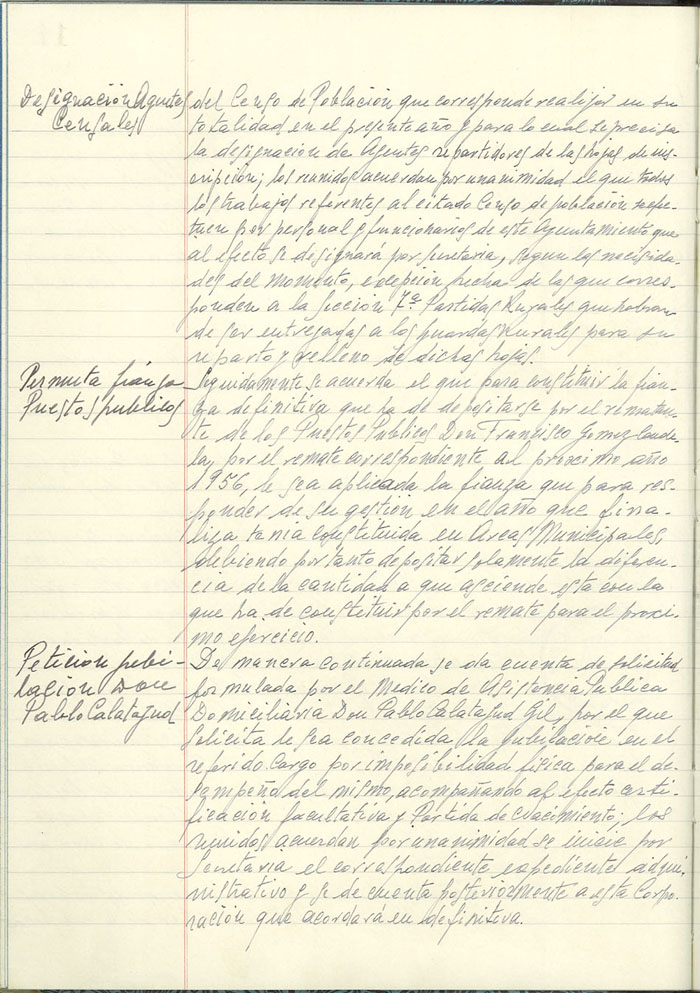 Designación Agentes
Censales
del Censo de Población que corresponde realizar en su
totalidad en el presente año y para lo cual se precisa
la designación de Agentes repartidores de las hojas de ins-
cripción; los reunidos acuerdan por unanimidad el que todos
los trabajos referentes al citado Censo de población se efec-
tuen por personal y funcionarios de este Ayuntamiento que
al efecto se designará por Secretaria, segun las necesida-
des del momento, excepción hecha de las que corres-
ponden a la Sección 7ª Partidas Rurales que habran
de ser entregadas a los guardas Rurales para su
reparto y relleno de dichas hojas.
Permuta fianza
Puestos publicos
Seguidamente se acuerda el que para constituir la fian-
za definitiva que ha de depositarse por el rematan-
te de los Puestos Publicos Don Francisco Gomez Cande-
la, por el remate correspondiente al proximo año
1956, le sea aplicada la fianza que para res-
ponder de su gestión en el año que fina-
liza tenia constituida en Arcas Municipales,
debiendo por tanto depositar solamente la diferen-
cia de la cantidad a que asciende esta con la
que ha de constituir por el remate para el proxi-
mo ejercicio.
Peticion jubi-
lación Don
Pablo Calatayud
De manera continuada se da cuenta de solicitud
formulada por el Medico de Asistencia Publica
Domiciliaria Don Pablo Calatayud Gil, por el que
solicita le sea concedida la jubilacion en el
referido Cargo por imposibilidad fisica para el de-
sempeño del mismo, acompañando al efecto certi-
ficación facultativa y Partida de Nacimiento; los
reunidos acuerdan por unanimidad se inicie por
Secretaria el correspondiente expediente admi-
nistrativo y se de cuenta posteriormente a esta Corpo-
ración que acordará en definitiva.